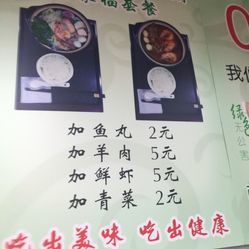 幸福套餐
加鱼丸 2元
加羊肉 5元
加鲜虾 5元
加青菜 2元
吃出美味 吃出健康
我们
绿
无公害